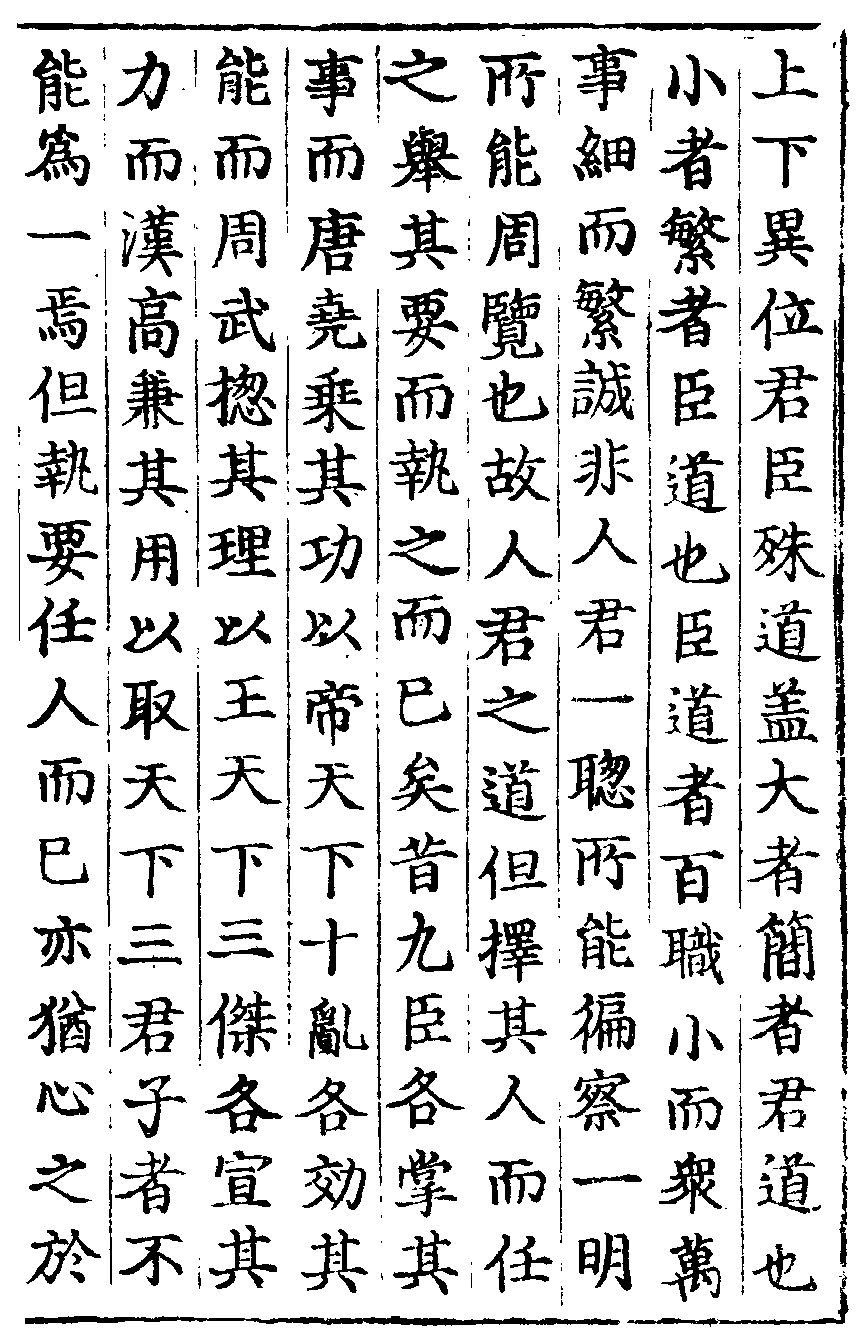 上下異位君臣殊道盖大者簡者君道也
小者繁者臣道也臣道者百職小而衆萬
事細而繁誠非人君一聦所能徧察一明
所能周覽也故人君之道但擇其人而任
之舉其要而執之而已矣昔九臣各掌其
事而唐堯乗其功以帝天下十亂各効其
能而周武揔其理以王天下三傑各宣其
力而漢高兼其用以取天下三君子者不
能爲一焉但執要任人而已亦猶心之於